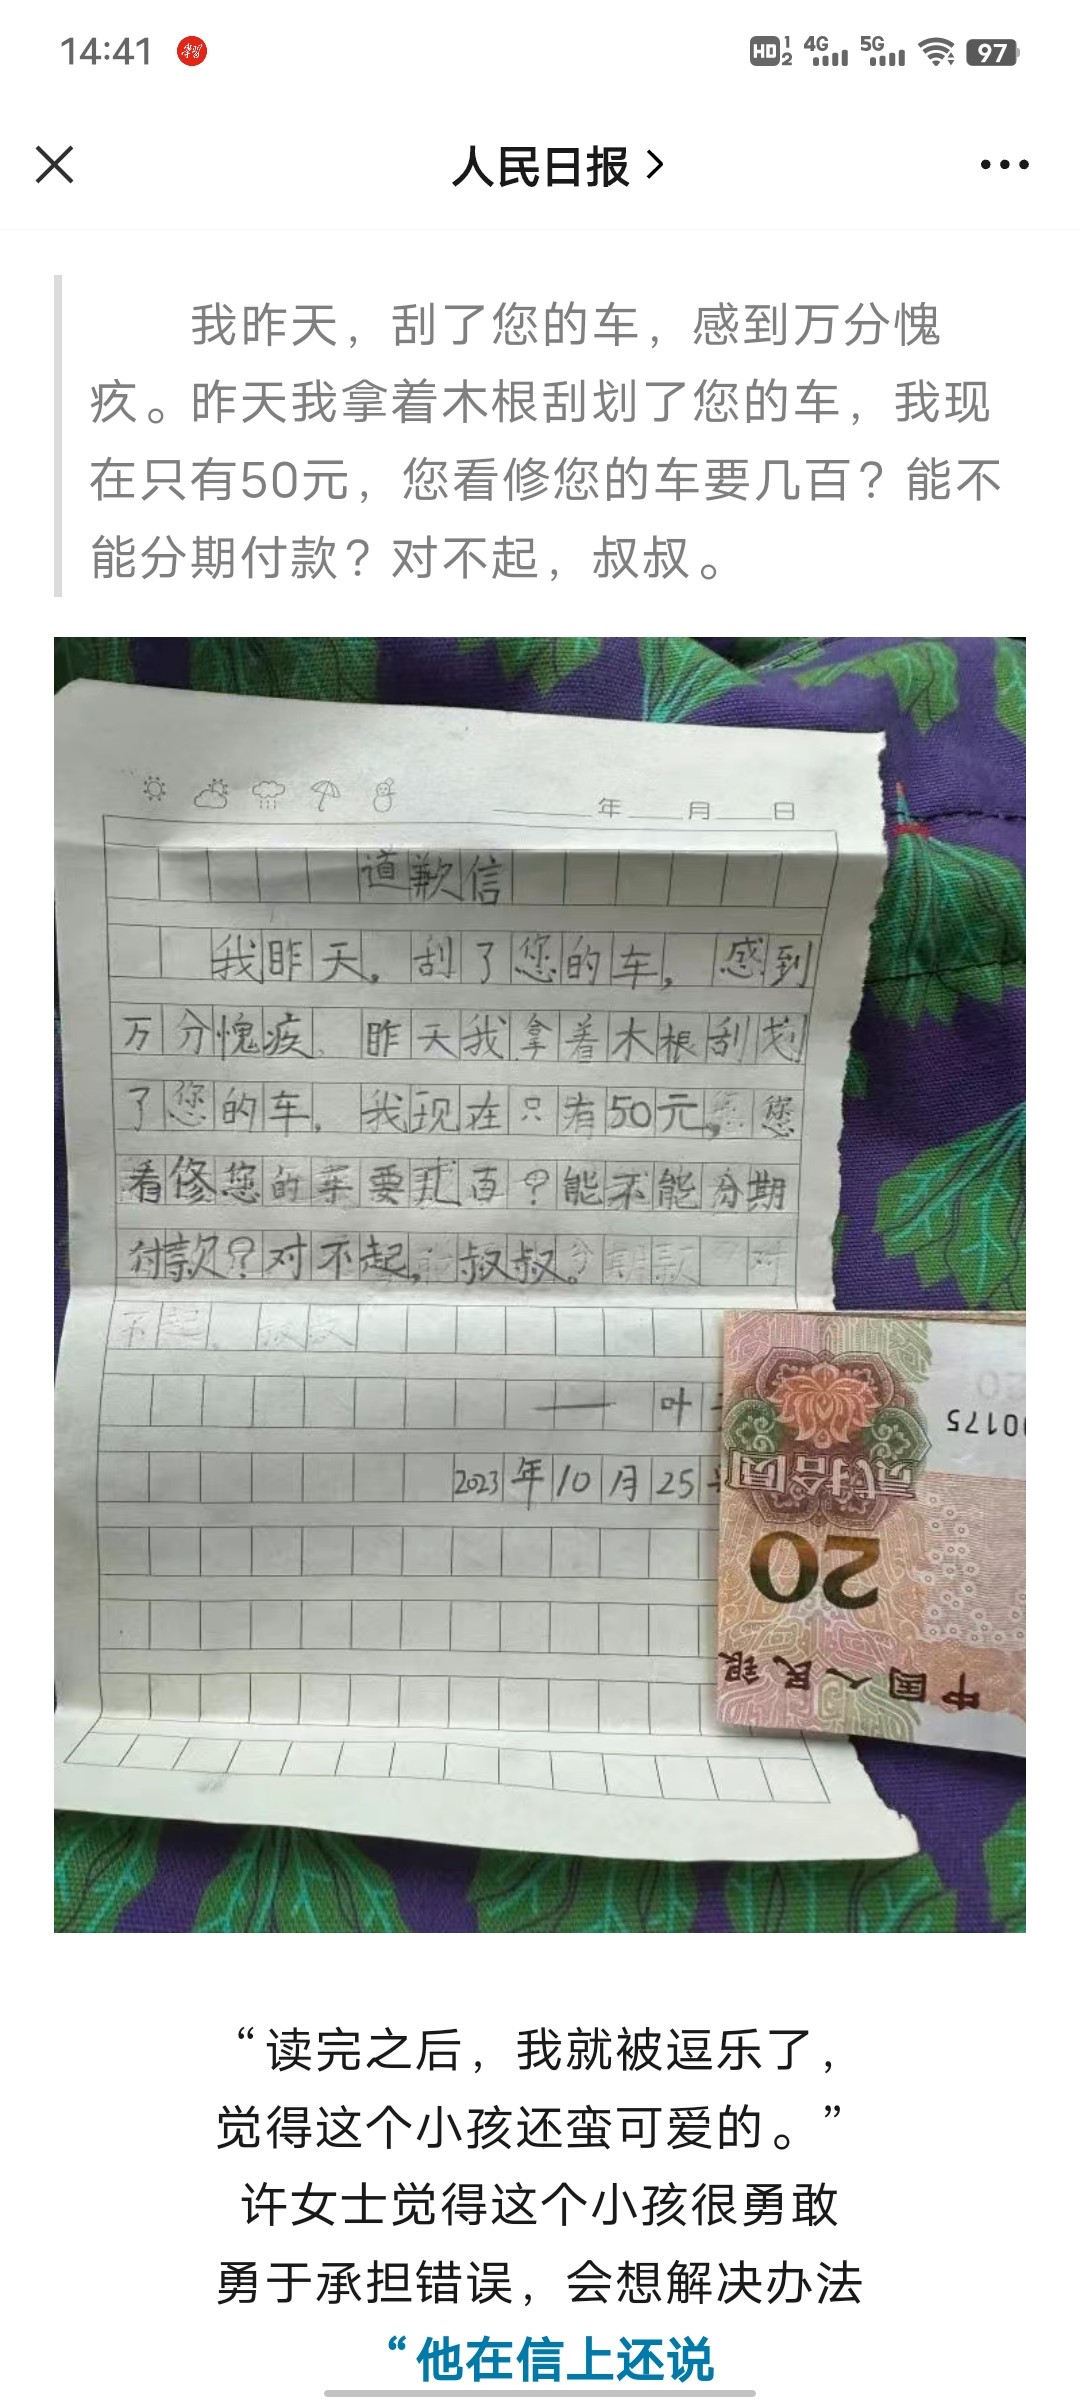 14:41
HD 1 2 4G 5G 97
人民日报
我昨天，刮了您的车，感到万分愧
疚。昨天我拿着木根刮划了您的车，我现
在只有50元，您看修您的车要几百？能不
能分期付款？对不起，叔叔。
年 月 日
道歉信
我昨天，刮了您的车，感到
万分愧疾。昨天我拿着木根刮划
了您的车，我现在只有50元，您
看修您的车要几百？能不能分期
付款？对不起，叔叔。
不起，叔叔
—— 叶
2023年10月25
00175
贰拾圆
20
中国人民银
“读完之后，我就被逗乐了，
觉得这个小孩还蛮可爱的。”
许女士觉得这个小孩很勇敢
勇于承担错误，会想解决办法
“他在信上还说